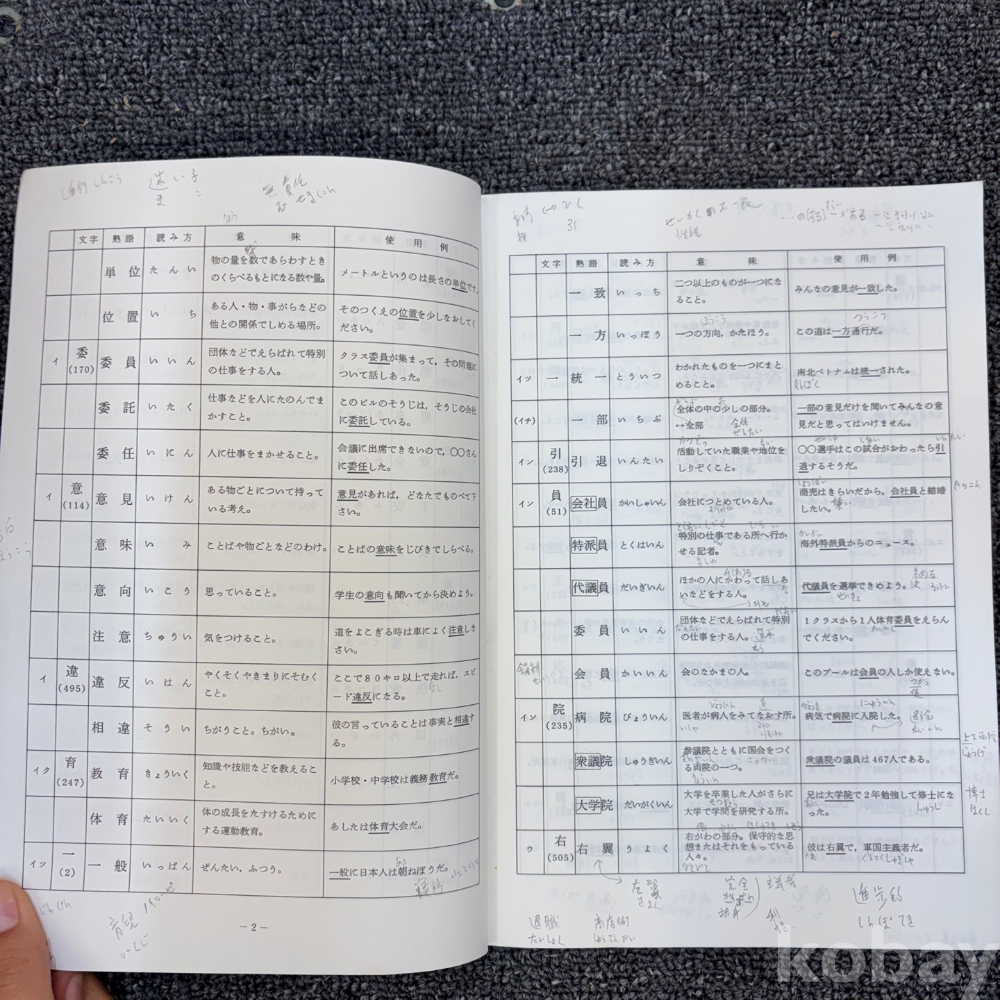 迷い子
ま こ
無責任
文字 熟語 読み方 意味 使用例
単位 たんい 物の量を数であらわすとき メートルというのは長さの単位です。
のくらべるもとになる数や量。
位置 いち ある人・物・事がらなどの そのつくえの位置を少しなおしてく
他との関係でしめる場所。 ださい。
イ 委 委員 いいん 団体などでえらばれて特別 クラス委員が集まって，その問題に
(170) の仕事をする人。 ついて話しあった。
委託 いたく 仕事などを人にたのんでま このビルのそうじは，そうじの会社
かすこと。 に委託している。
委任 いにん 人に仕事をまかせること。 会議に出席できないので，〇〇さん
に委任した。
イ 意 意見 いけん ある物ごとについて持って 意見があれば，どなたでものべて下
(114) いる考え。 さい。
意味 いみ ことばや物ごとなどのわけ。 ことばの意味をじびきでしらべる。
意向 いこう 思っていること。 学生の意向も聞いてから決めよう。
注意 ちゅうい 気をつけること。 道をよこぎる時は車によく注意しな
さい。
イ 違 違反 いはん やくそくやきまりにそむく ここで80キロ以上で走れば，スピ
(495) こと。 ード違反になる。
相違 そうい ちがうこと。ちがい。 彼の言っていることは事実と相違す
る。
イク 育 教育 きょういく 知識や技能などを教えるこ 小学校・中学校は義務教育だ。
(247) と。
体育 たいいく 体の成長をたすけるために あしたは体育大会だ。
する運動教育。
イツ 一 一般 いっぱん ぜんたい，ふつう。 一般に日本人は朝ねぼうだ。
(2)
－2－
31
文字 熟語 読み方 意味 使用例
一致 いっち 二つ以上のものが一つにな みんなの意見が一致した。
ること。
一方 いっぽう 一つの方向，かたほう。 この道は一方通行だ。
イツ 一 統一 とういつ わかれたものを一つにまと 南北ベトナムは統一された。
めること。
(イチ) 一部 いちぶ 全体の中の少しの部分。 一部の意見だけを聞いてみんなの意
↔全部 見だと思ってはいけません。
イン 引 引退 いんたい 活動していた職業や地位を 〇〇選手はこの試合がおわったら引
(238) しりぞくこと。 退するそうだ。
イン 員 会社員 かいしゃいん 会社につとめている人。 商売はきらいだから，会社員と結婚
(51) したい。
特派員 とくはいん 特別の仕事である所へ行か 海外特派員からのニュース。
せる記者。
代議員 だいぎいん ほかの人にかわって話しあ 代議員を選挙できめよう。
いなどをする人。
委員 いいん 団体などでえらばれて特別 1クラスから1人体育委員をえらん
の仕事をする人。 でください。
会員 かいいん 会のなかまの人。 このプールは会員の人しか使えない。
イン 院 病院 びょういん 医者が病人をみてなおす所。 病気で病院に入院した。
(235)
衆議院 しゅうぎいん 参議院とともに国会をつく 衆議院の議員は467人である。
る両院の一つ。
大学院 だいがくいん 大学を卒業した人がさらに 兄は大学院で2年勉強して修士にな
大学で学問を研究する所。 った。
ウ 右 右翼 うよく 右がわの部分。保守的な思 彼は右翼で，軍国主義者だ。
(505) 想またはそれをもっている
人々。
左翼
さよく
進歩的
しんぽてき
退職
たいしょく
商店街
しょうてんがい
博士
kobay